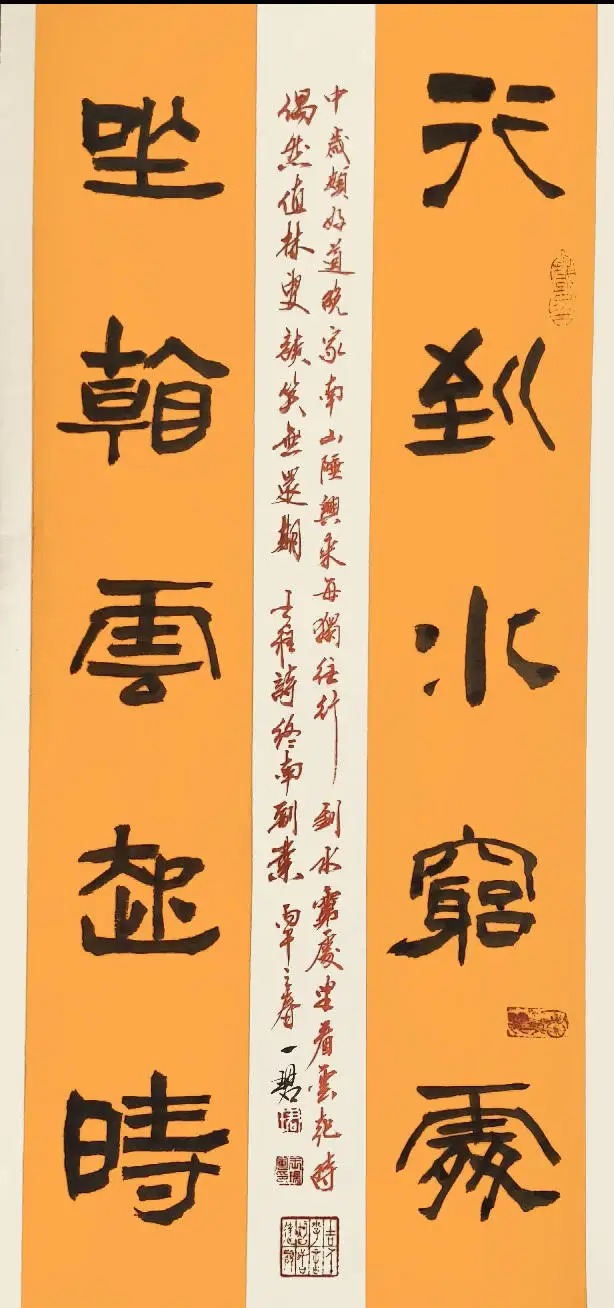 行到水窮處
中歲頗好道晚家南山陲興来每獨往行到水窮處坐看雲起時
偶然值林叟談笑無還期 王維詩終南別業 丙午之春 一
坐看雲起時